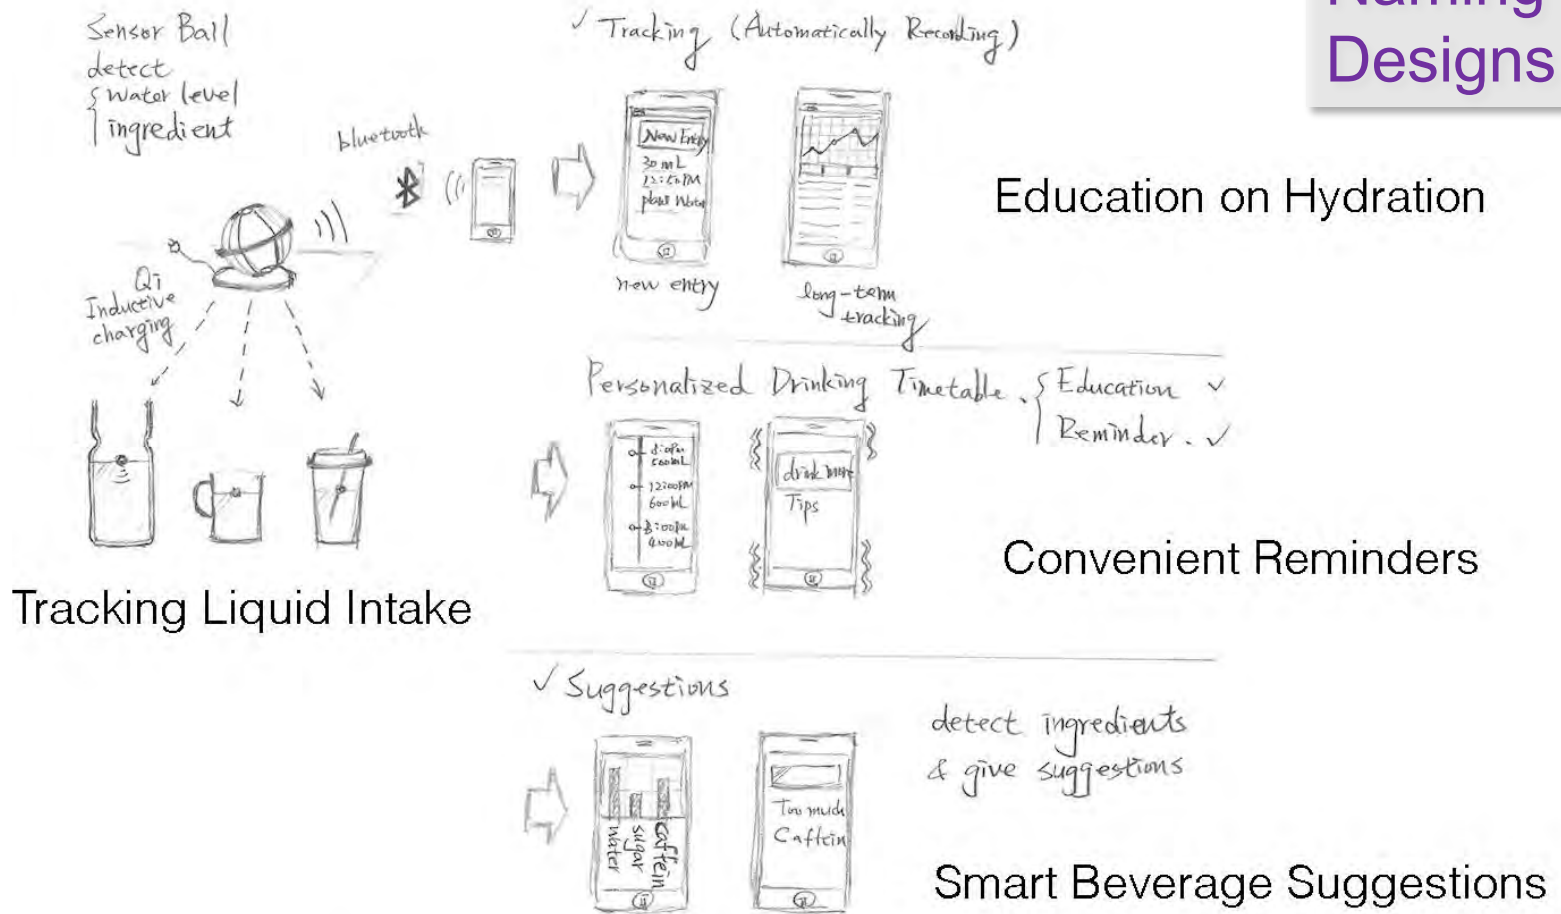 Naming
Designs
Sensor Ball
detect
water level
ingredient
bluetooth
Qi
Inductive
charging
Tracking Liquid Intake
✓ Tracking (Automatically Recording)
New Entry
30 mL
plain Water
new entry
long-term
tracking
Education on Hydration
Personalized Drinking Timetable.
Education ✓
Reminder. ✓
500mL
12:00PM
600mL
400mL
drink more
Tips
Convenient Reminders
✓ Suggestions
water
sugar
caffein
Too much
Caffein
detect ingredients
& give suggestions
Smart Beverage Suggestions